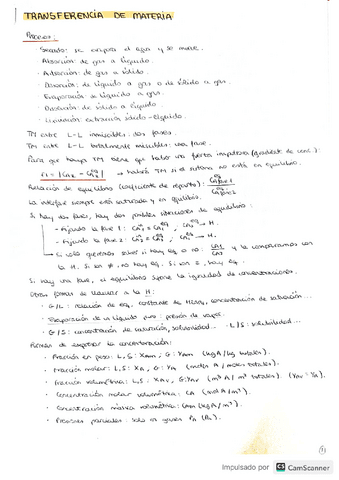 TRANSFERENCIA DE MATERIA
Procesos:
Secado: se evapora el agua y se mueve.
· Absorción: de gas a líquido.
· Adsorción: de gas a sólido.
· Desorción: de líquido a gas o de sólido a gas.
· Evaporación: de líquido a gas.
· Disolución: de sólido a líquido.
· Lixiviación: extracción sólido-líquido.
TM entre L-L inmiscibles: dos fases.
TM entre L-L totalmente miscibles: una fase.
Para que haya TM tiene que haber una fuerza impulsora (gradiente de conc.):
→ habrá TM si el sistema no está en equilibrio.
Relación de equilibrio (coeficiente de reparto):
La interfase siempre está saturada y en equilibrio.
Si hay dos fases, hay dos posibles situaciones de equilibrio:
- Fijando la fase 1:
- Fijando la fase 2:
Si solo queremos saber si hay eq o no: y la comparamos con
la H. Si son ≠, no hay eq. Si son =, hay eq.
Si hay una fase, el equilibrio supone la igualdad de concentraciones.
Otras formas de llamar a la H:
· G/L: relación de eq, constante de Henry, concentración de saturación...
· Evaporación de un líquido puro: presión de vapor.
· G/S: concentración de saturación, solubilidad... · L/S: solubilidad...
Formas de expresar la concentración:
· Fracción en peso: L, S: (kg A/kg totales).
· Fracción molar: L, S: XA, G: YA (moles A/moles totales).
· Fracción volumétrica: L, S: XAV, G: YAV (m³ A/m³ totales).
· Concentración molar volumétrica: CA (mol A/m³).
· Concentración másica volumétrica: (kg A/m³).
· Presiones parciales: solo en gases PA
(1)
Impulsado por CS CamScanner